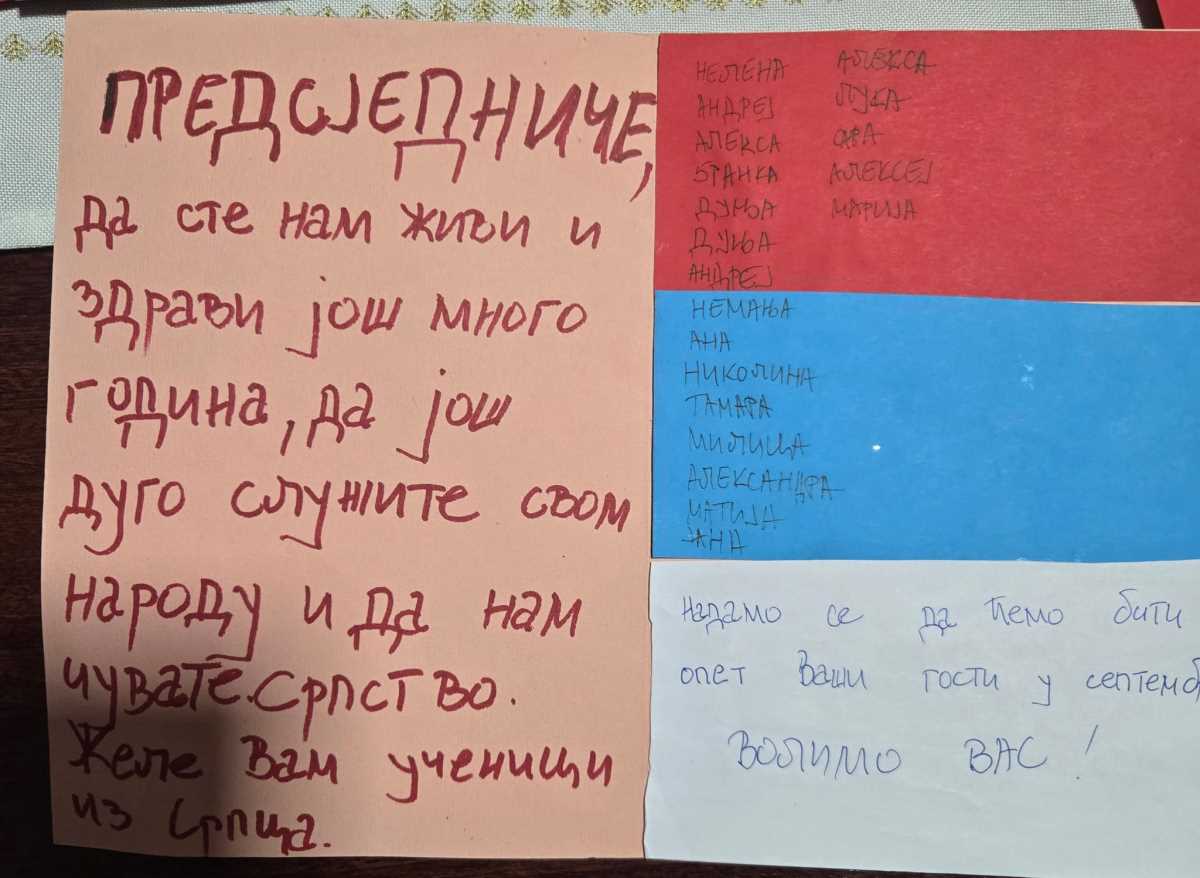 ПРЕДСЈЕДНИЧЕ,
да сте нам живи и
здрави још много
година, да још
дуго служите свом
народу и да нам
чувате Српство.
Желе Вам ученици
из Српца.
НЕЛЕНА
АНДРЕЈ
АЛЕКСА
БРАНКА
ДУЊА
ДУЊА
АНДРЕЈ
НЕМАЊА
АНА
НИКОЛИНА
ТАМАРА
МИЛИЦА
АЛЕКСАНДРА
МАТИЈА
ЈАНА
АЛЕКСА
ЛУКА
САРА
АЛЕКСЕЈ
МАРИЈА
Надамо се да ћемо бити
опет Ваши гости у септемб
ВОЛИМО ВАС!